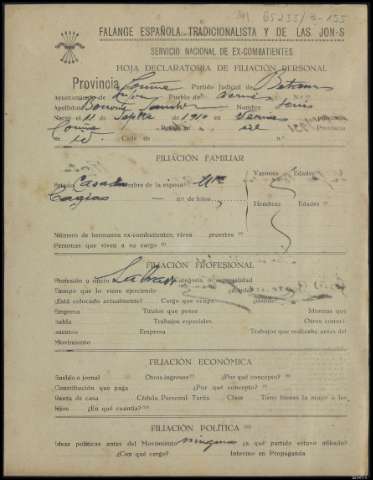 65235/2-155
FALANGE ESPAÑOLA TRADICIONALISTA Y DE LAS JON-S
SERVICIO NACIONAL DE EX-COMBATIENTES
HOJA DECLARATORIA DE FILIACIÓN PERSONAL
Provincia Coruña Partido Judicial de Betanzos
Ayuntamiento de Pueblo de
Apellidos Nombre
Nació el 11 de Septbre de 1910 en Provincia
Coruña
id. Calle de n.º
FILIACIÓN FAMILIAR
Varones Edades
Estado Casado Nombre de la esposa
n.º de hijos
Hembras Edades
Número de hermanos ex-combatientes, vivos muertos
Personas que viven a su cargo
FILIACIÓN PROFESIONAL
Profesión u oficio categoría o especialidad
Tiempo que lo viene ejerciendo
¿Está colocado actualmente? Cargo que ocupa
Empresa Títulos que posee Idiomas que
habla Trabajos especiales Otros conoci-
mientos Empresa Trabajos que realizaba antes del
Movimiento
FILIACIÓN ECONÓMICA
Sueldo o jornal Otros ingresos ¿Por qué concepto?
Contribución que paga ¿Por qué concepto?
Renta de casa Cédula Personal Tarifa Clase Tiene bienes la mujer o los
hijos ¿En qué cuantía?
FILIACIÓN POLÍTICA
Ideas políticas antes del Movimiento ninguna ¿A qué partido estuvo afiliado?
¿Con qué cargo? Intervino en Propaganda